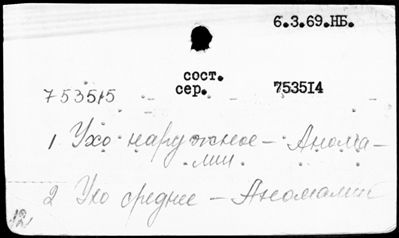 6.3.69.НБ.
сост.
сер. 753514
753515
1 Ухо наружное – Анома-
лии
2 Ухо среднее – Аномалии
12